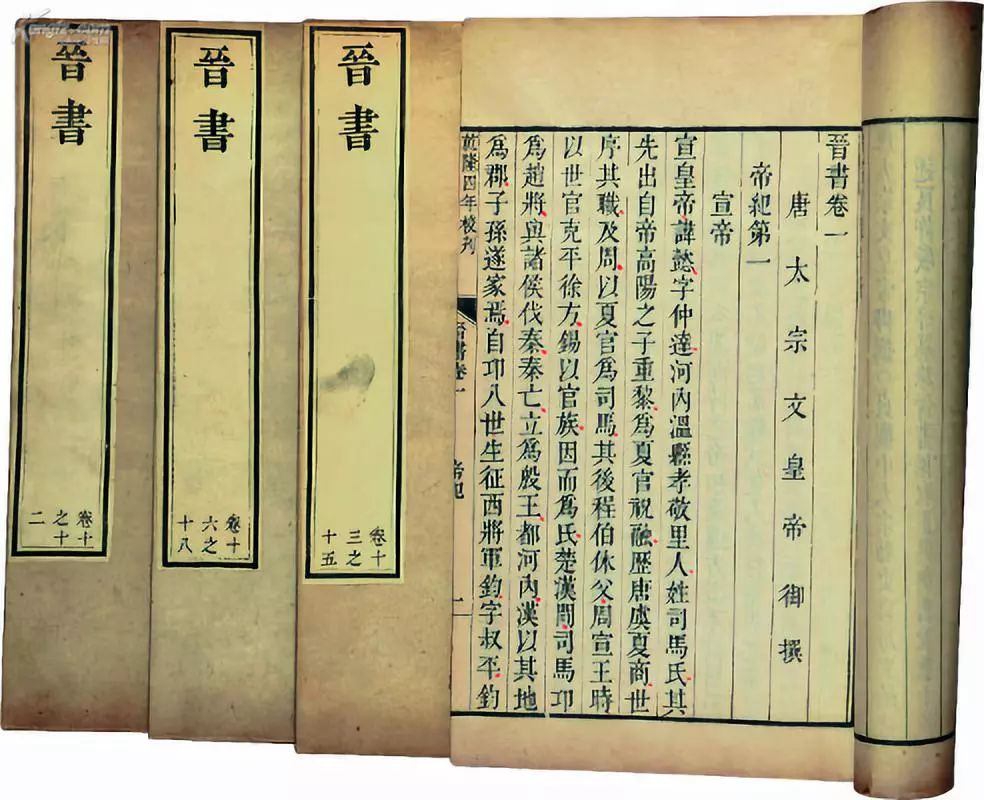 晉書卷一
唐太宗文皇帝御撰
帝紀第一
宣帝
宣皇帝諱懿字仲達河內溫縣孝敬里人姓司馬氏其
先出自帝高陽之子重黎為夏官祝融歷唐虞夏商世
序其職及周以夏官為司馬其後程伯休父周宣王時
以世官克平徐方錫以官族因而為氏楚漢間司馬卬
為趙將與諸侯伐秦秦亡立為殷王都河內漢以其地
為郡子孫遂家焉自卬八世生征西將軍鈞字叔平鈞
乾隆四年校刊
晉書卷一
帝紀
一
晉書
卷十
三之
十五
晉書
卷十
六之
十八
晉書
卷十
之十
二